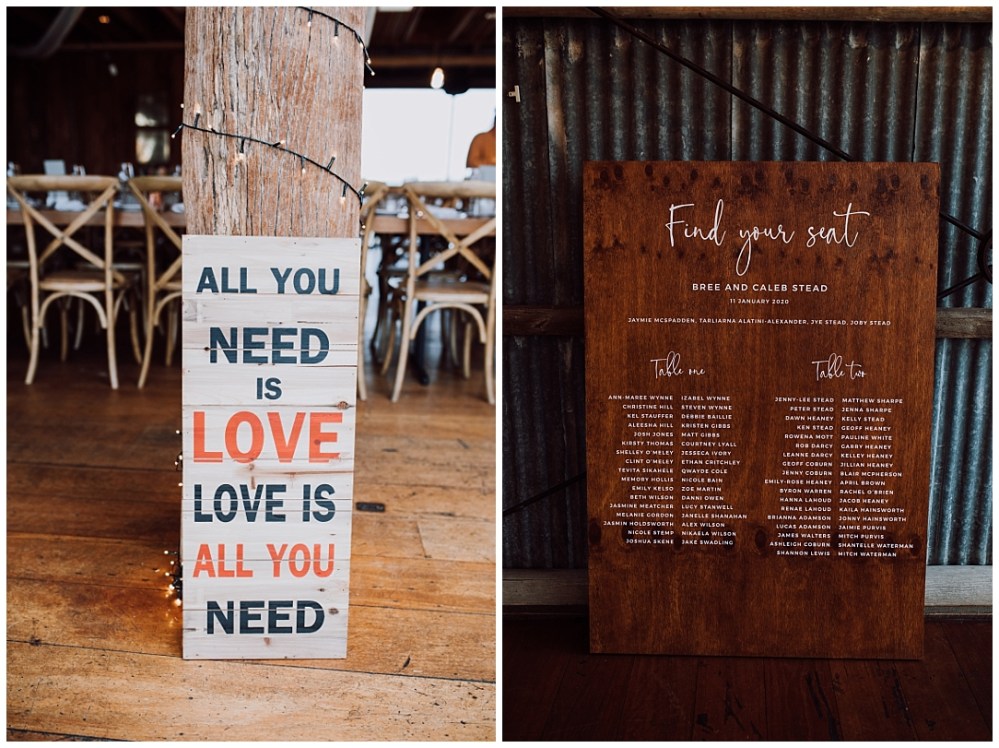 ALL YOU
NEED
IS
LOVE
LOVE IS
ALL YOU
NEED
Find your seat
BREE AND CALEB STEAD
11 JANUARY 2020
JAYMIE MCSPADDEN, TARLIARNA ALATINI-ALEXANDER, JYE STEAD, JOBY STEAD
Table one
ANN-MAREE WYNNE IZABEL WYNNE
CHRISTINE HILL STEVEN WYNNE
KEL STAUFFER DEBBIE BAILLIE
ALEESHA HILL KRISTEN GIBBS
JOSH JONES MATT GIBBS
KIRSTY THOMAS COURTNEY LYALL
SHELLEY O'MELEY JESSECA IVORY
CLINT O'MELEY ETHAN CRITCHLEY
TEVITA SIKAHELE QWAYDE COLE
MEMORY HOLLIS NICOLE BAIN
EMILY KELSO ZOE MARTIN
BETH WILSON DANNI OWEN
JASMINE MEATCHER LUCY STANWELL
MELANIE GORDON JANELLE SHANAHAN
JASMIN HOLDSWORTH ALEX WILSON
NICOLE STEMP MIKAELA WILSON
JOSHUA SKENE JAKE SWADLING
Table two
JENNY-LEE STEAD MATTHEW SHARPE
PETER STEAD JENNA SHARPE
DAWN HEANEY KELLY STEAD
KEN STEAD GEOFF HEANEY
ROWENA MOTT PAULINE WHITE
ROB DARCY GARRY HEANEY
LEANNE DARCY KELLEY HEANEY
GEOFF COBURN JILLIAN HEANEY
JENNY COBURN BLAIR MCPHERSON
EMILY-ROSE HEANEY APRIL BROWN
BYRON WARREN RACHEL O'BRIEN
HANNA LAHOUD JACOB HEANEY
RENAE LAHOUD KAILA HAINSWORTH
BRIANNA ADAMSON JONNY HAINSWORTH
LUCAS ADAMSON JAIMIE PURVIS
JAMES WALTERS MITCH PURVIS
ASHLEIGH COBURN SHANTELLE WATERMAN
SHANNON LEWIS MITCH WATERMAN